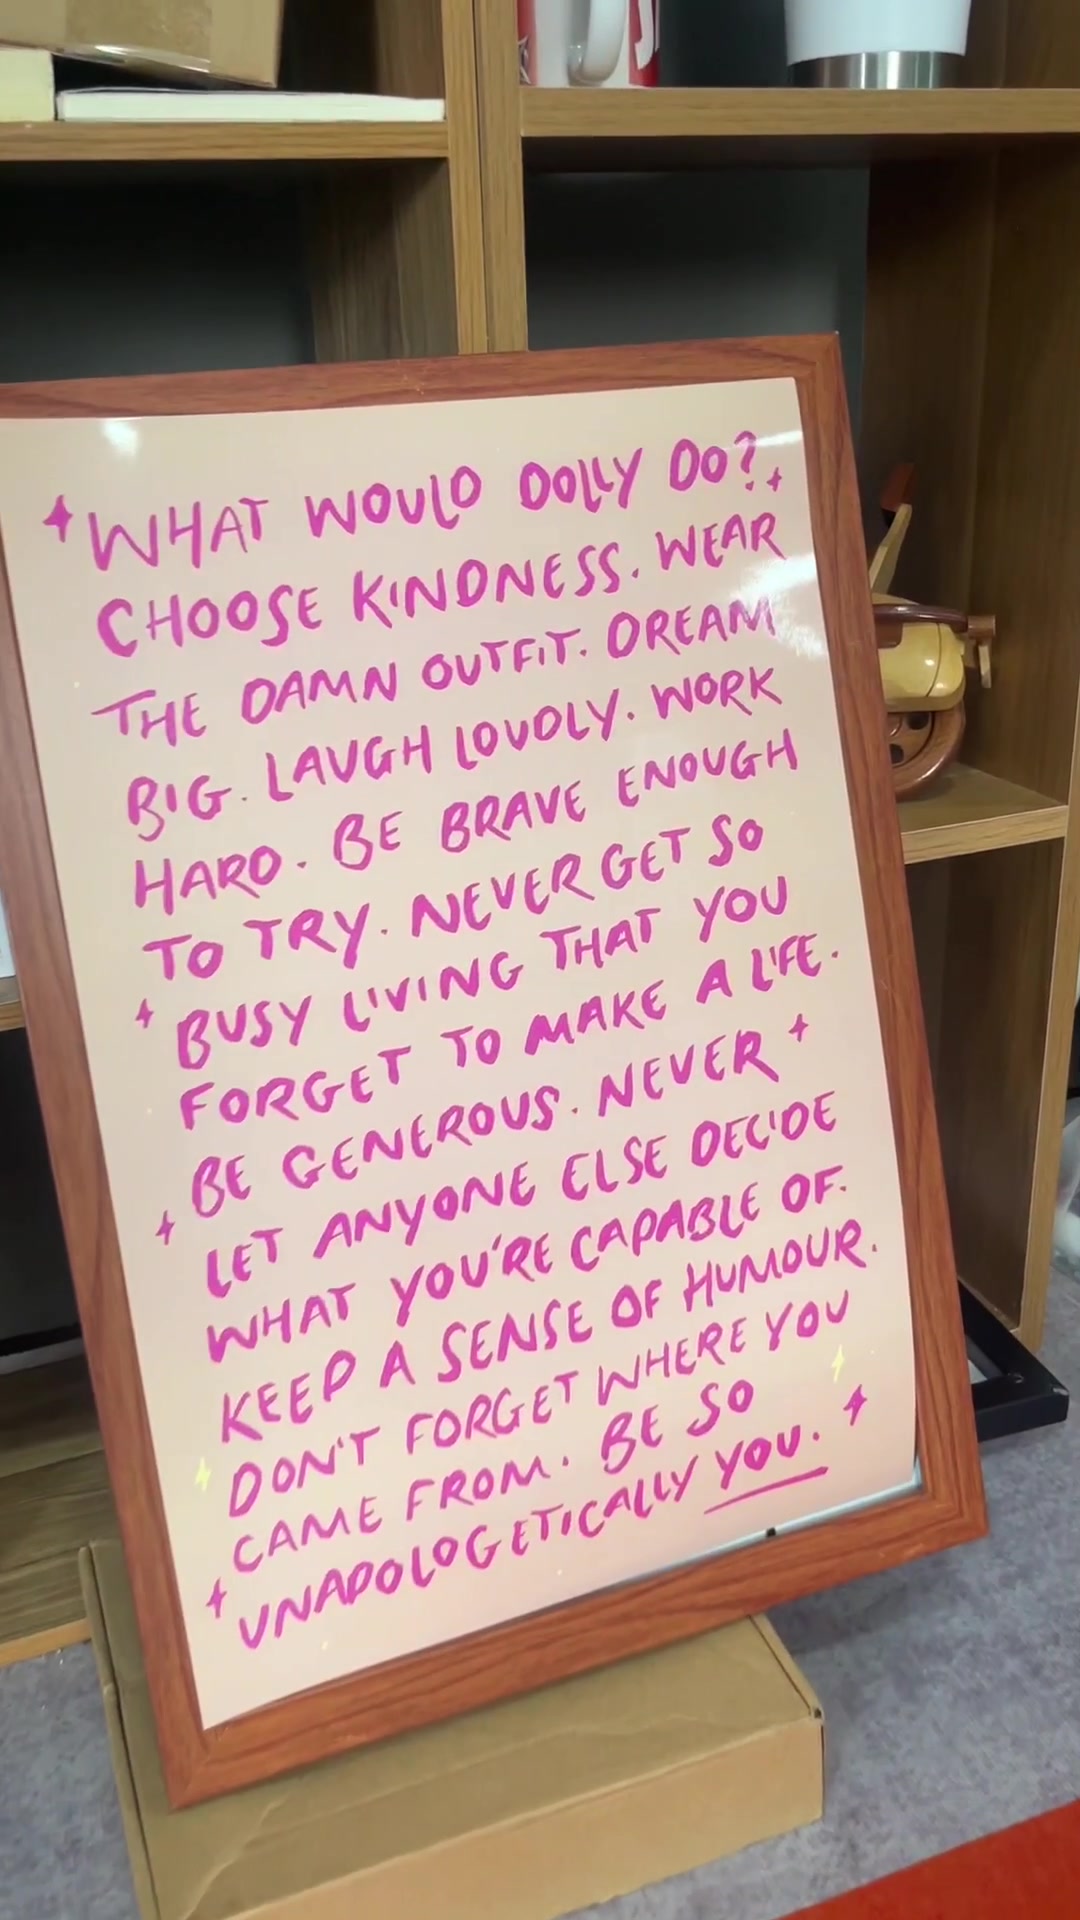 WHAT WOULD DOLLY DO?
CHOOSE KINDNESS. WEAR
THE DAMN OUTFIT. DREAM
BIG. LAUGH LOUDLY. WORK
HARD. BE BRAVE ENOUGH
TO TRY. NEVER GET SO
BUSY LIVING THAT YOU
FORGET TO MAKE A LIFE.
BE GENEROUS. NEVER
LET ANYONE ELSE DECIDE
WHAT YOU'RE CAPABLE OF.
KEEP A SENSE OF HUMOUR.
DON'T FORGET WHERE YOU
CAME FROM. BE SO
UNAPOLOGETICALLY YOU.